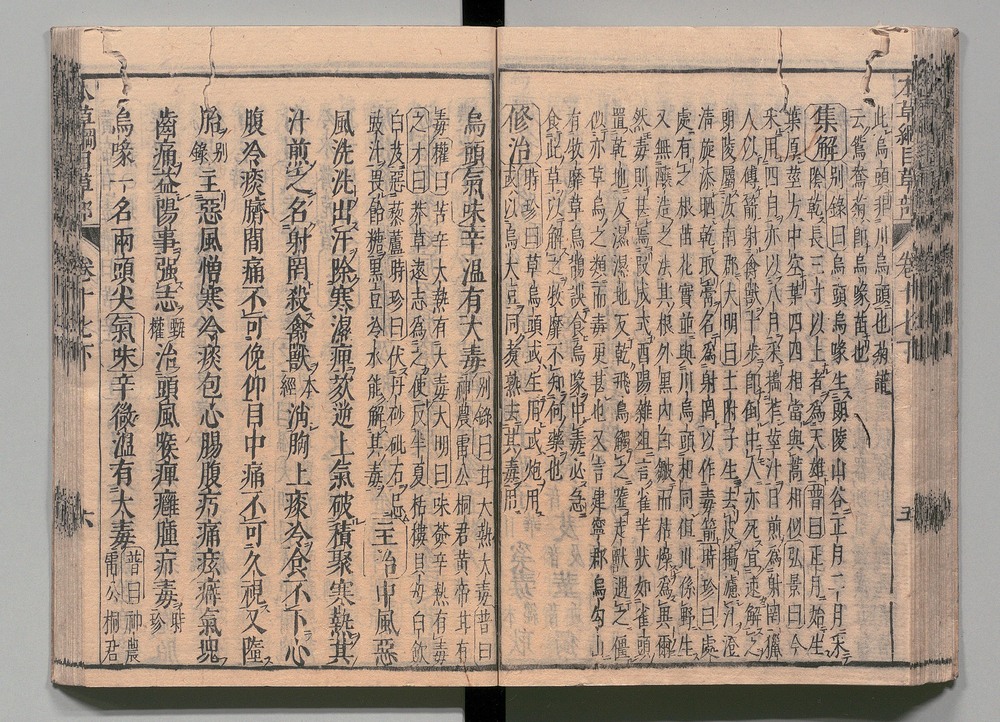 此烏頭非川烏頭也菊譜
云鴛鴦菊即烏喙苗也
集解別錄曰烏頭烏喙生朗陵山谷正月二月采
陰乾長三寸以上者為天雄普曰正月始生
葉厚莖方中空葉四四相當與蒿相似弘景曰今
采用四月亦以八月采搗笮莖汁日煎為射罔獵
人以傅箭射禽獸十步即倒中人亦死宜速解之
朗陵屬汝南郡大明曰土附子生去皮搗濾汁澄
清旋添晒乾取膏名為射罔以作毒箭時珍曰處
處有之根苗花實並與川烏頭相同但川係野生
又無釀造之法其根外黑內白皺而枯燥為異爾
然毒則甚焉段成式酉陽雜俎言雀芋狀如雀頭
置乾地反濕濕地反乾飛鳥觸之墮走獸遇之僵
似亦草烏之類而毒更甚也又言建寧郡烏勾山
有牧靡草鳥鵲誤食烏喙中毒必急
食此草以解之牧靡不知何藥也
修治時珍曰草烏頭或生用或炮用
或以烏大豆同煑熟去其毒用
烏頭氣味辛溫有大毒別錄曰甘大熱大毒普曰
神農雷公桐君黃帝甘有
毒權曰苦辛大熱有大毒大明曰味薟辛熱有毒
之才曰莽草遠志為之使反半夏栝樓貝母白斂
白及惡藜蘆時珍曰伏丹砂砒石忌
豉汁畏飴糖黑豆冷水能解其毒主治中風惡
風洗洗出汗除寒濕痺欬逆上氣破積聚寒熱其
汁煎之名射罔殺禽獸本經消胸上痰冷食不下心
腹冷痰臍間痛不可俛仰目中痛不可久視又墮
胎別錄主惡風憎寒冷痰包心腸腹㽲痛痃癖氣塊
齒痛益陽事強志甄權治頭風喉痺癰腫疔毒時珍
烏喙一名兩頭尖氣味辛微溫有大毒普曰神農
雷公桐君
本草綱目草部 卷十七下 五
本草綱目草部 卷十七下 六